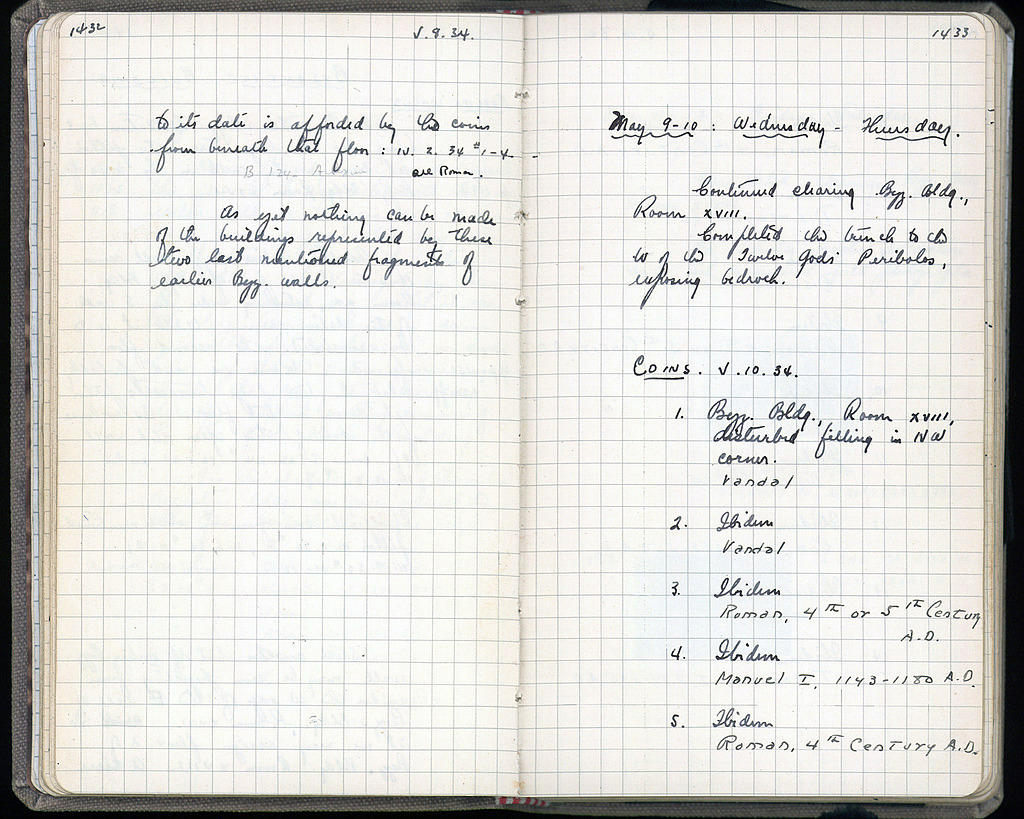 1432
V. 8. 34.
to its date is afforded by the coins
from beneath that floor : IV. 2. 34 #1-4
are Roman.
As yet nothing can be made
of the buildings represented by these
two last mentioned fragments of
earlier Byz. walls.
1433
May 9-10 : Wednesday - Thursday.
Continued clearing Byz. Bldg.,
Room XVIII.
Completed the trench to the
W of the Twelve Gods' Peribolos,
exposing bedrock.
COINS. V. 10. 34.
1. Byz. Bldg., Room XVIII,
disturbed filling in NW
corner.
Vandal
2. Ibidem
Vandal
3. Ibidem
Roman, 4TH or 5TH Century
A.D.
4. Ibidem
Manuel I, 1143-1180 A.D.
5. Ibidem
Roman, 4TH Century A.D.